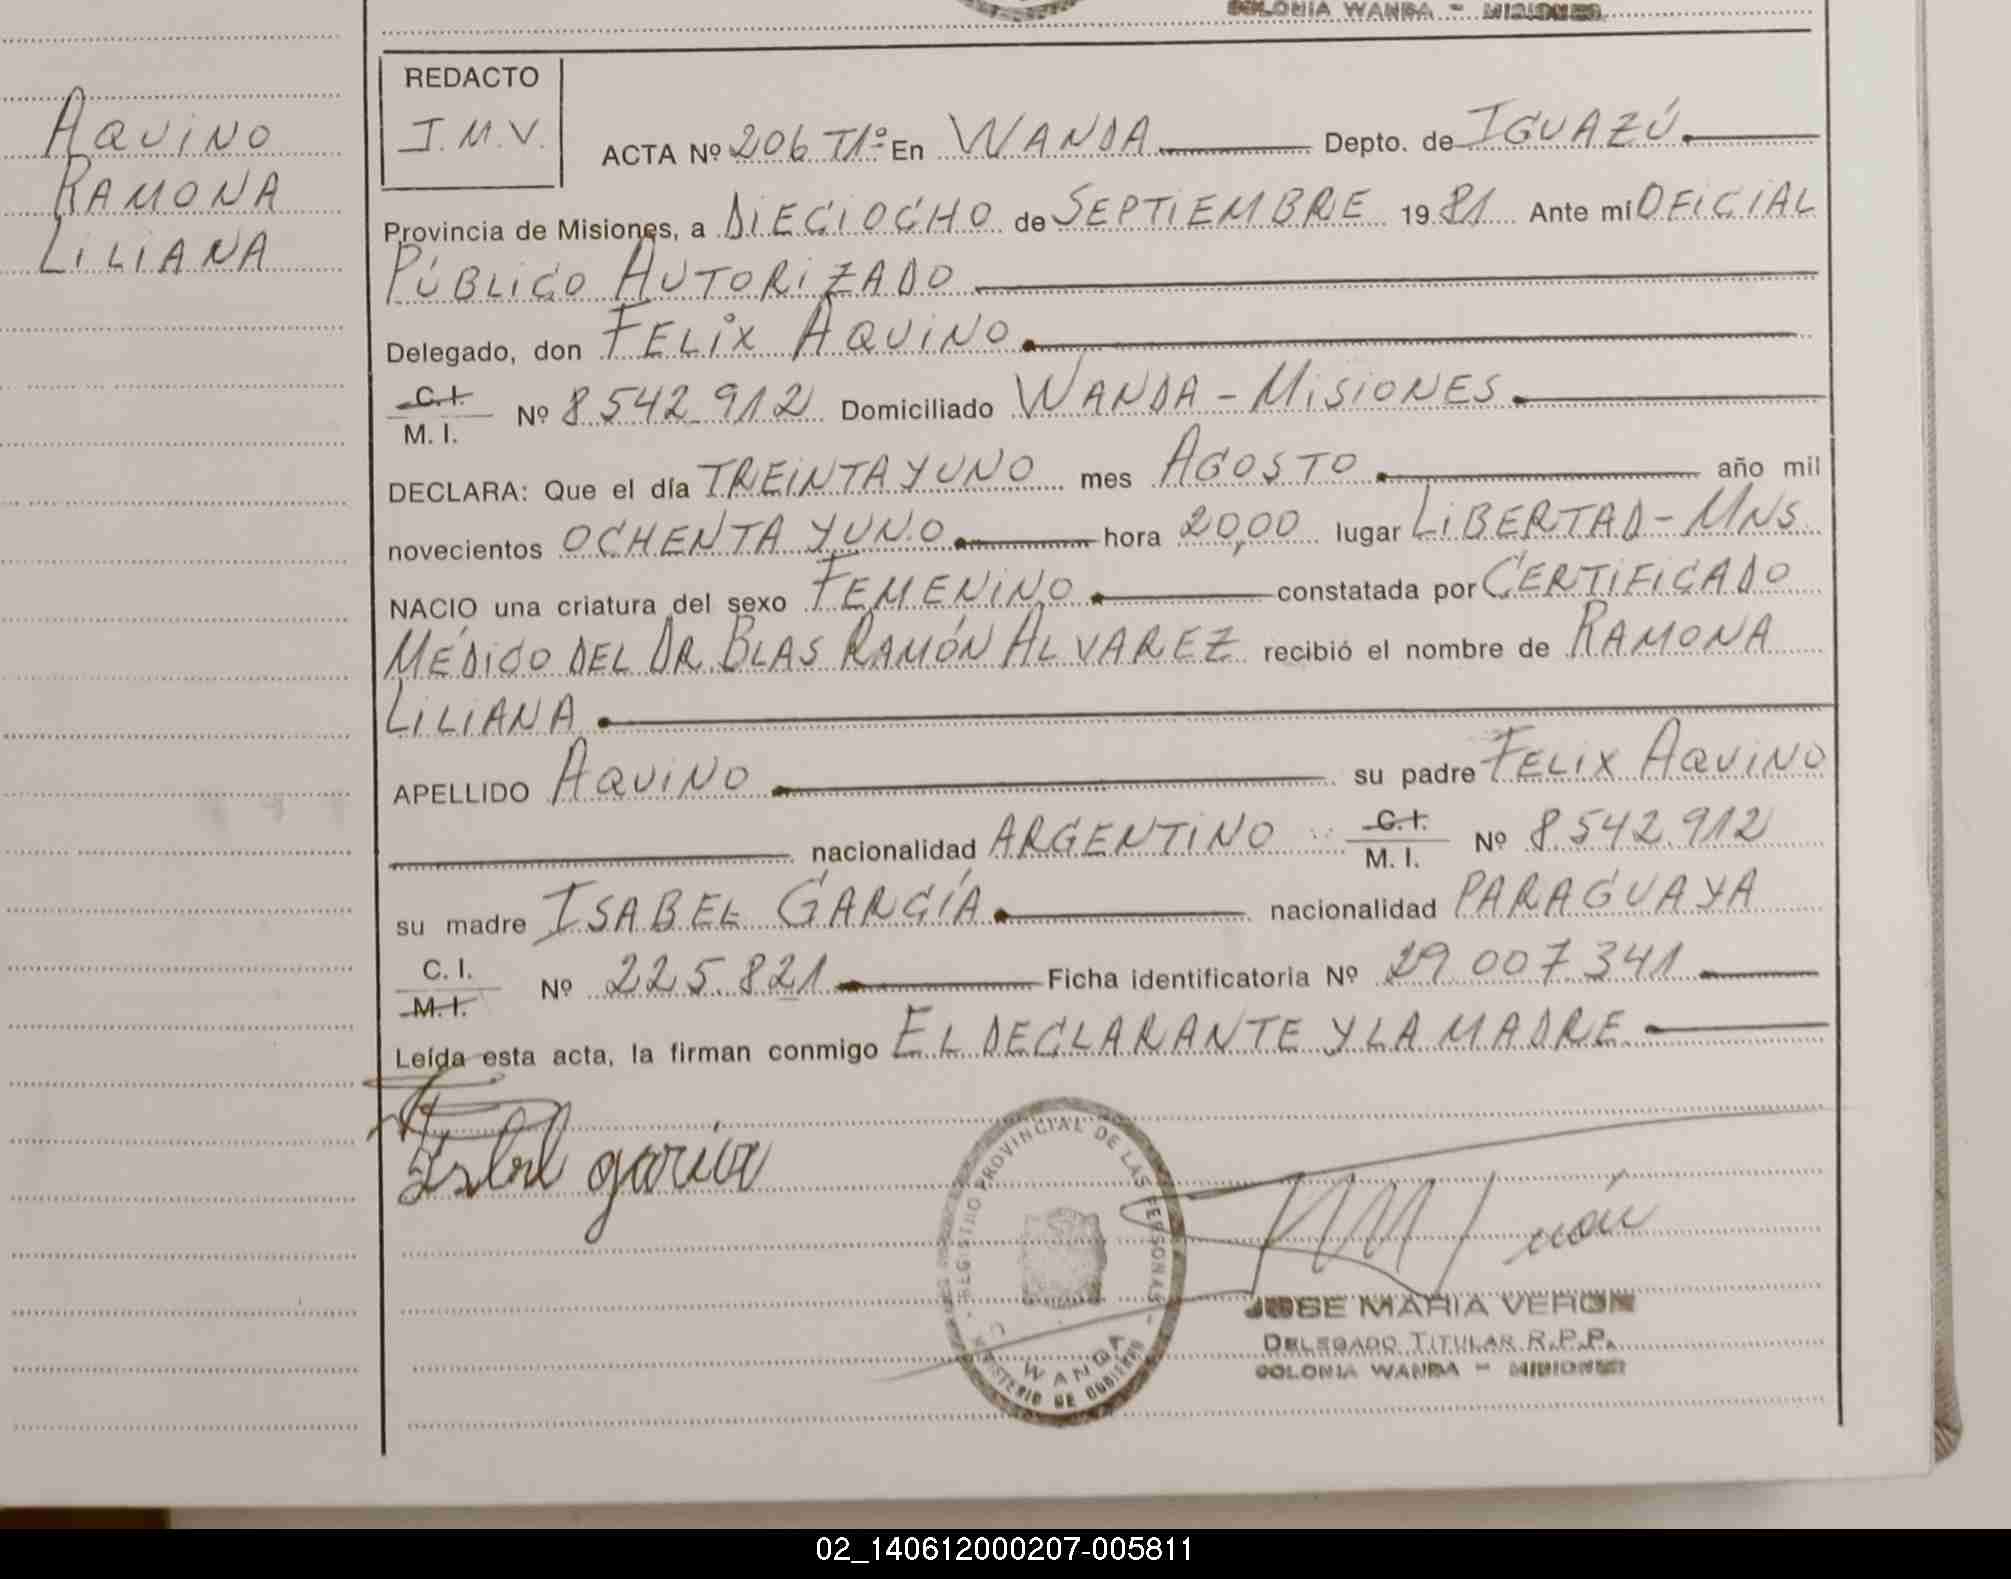 COLONIA WANDA - MISIONES
AQUINO
RAMONA
LILIANA
REDACTO
J.M.V.
ACTA Nº 206 T1º En WANDA Depto. de IGUAZÚ.
Provincia de Misiones, a DIECIOCHO de SEPTIEMBRE 1981 Ante mí OFICIAL
PÚBLICO AUTORIZADO
Delegado, don FELIX AQUINO.
C.I.
M. I. Nº 8.542.912 Domiciliado WANDA - MISIONES.
DECLARA: Que el día TREINTA Y UNO mes AGOSTO. año mil
novecientos OCHENTA Y UNO. hora 20,00 lugar LIBERTAD - MNS
NACIO una criatura del sexo FEMENINO. constatada por CERTIFICADO
MÉDICO DEL DR. BLAS RAMÓN ALVAREZ recibió el nombre de RAMONA
LILIANA.
APELLIDO AQUINO. su padre FELIX AQUINO
nacionalidad ARGENTINO C.I. M. I. Nº 8.542.912
su madre ISABEL GARCÍA. nacionalidad PARAGUAYA
C. I.
M.I. Nº 225.821 Ficha identificatoria Nº 29.007.341
Leída esta acta, la firman conmigo EL DECLARANTE Y LA MADRE.
Isabel garcia
REGISTRO PROVINCIAL DE LAS PERSONAS
WANDA
MINISTERIO DE GOBIERNO
JOSE MARIA VERON
DELEGADO TITULAR R.P.P.
COLONIA WANDA - MISIONES
02_140612000207-005811